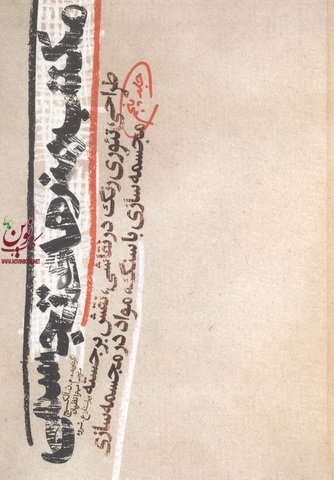 مکتب هنرهای تجسمی
جلد پنجم
طراحی، تئوری رنگ در نقاشی، نقش برجسته
مجسمه سازی با سنگ، مواد در مجسمه سازی
نوین
WWW.NOVINBOOK.NET